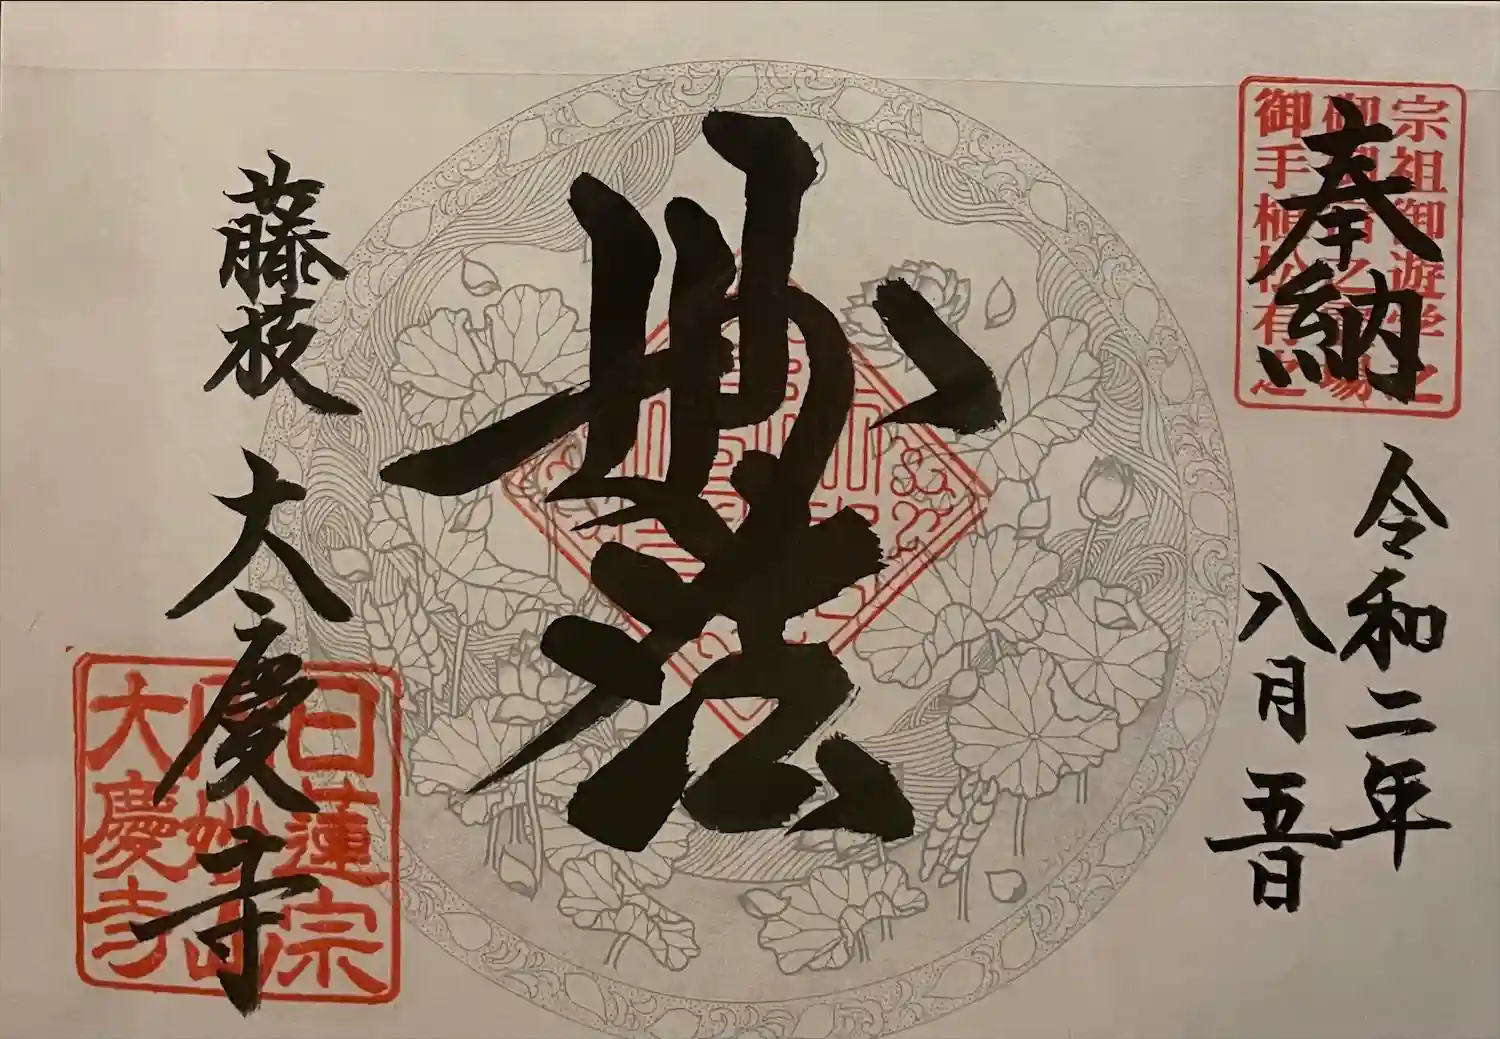 奉納
宗祖御遊学之
御手植松有之
令和二年
八月五日
妙法
藤枝
大慶寺
日蓮宗
大慶寺